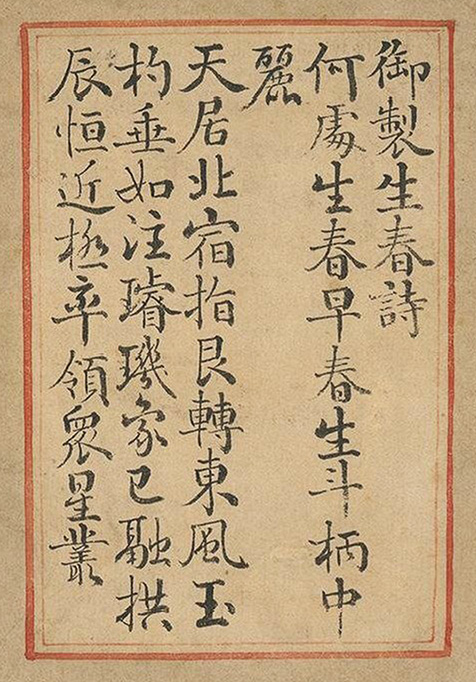 御製生春詩
何處生春早春生斗柄中
麗
天居北宿指艮轉東風玉
杓垂如注璿璣象已融拱
辰恒近極率領衆星叢